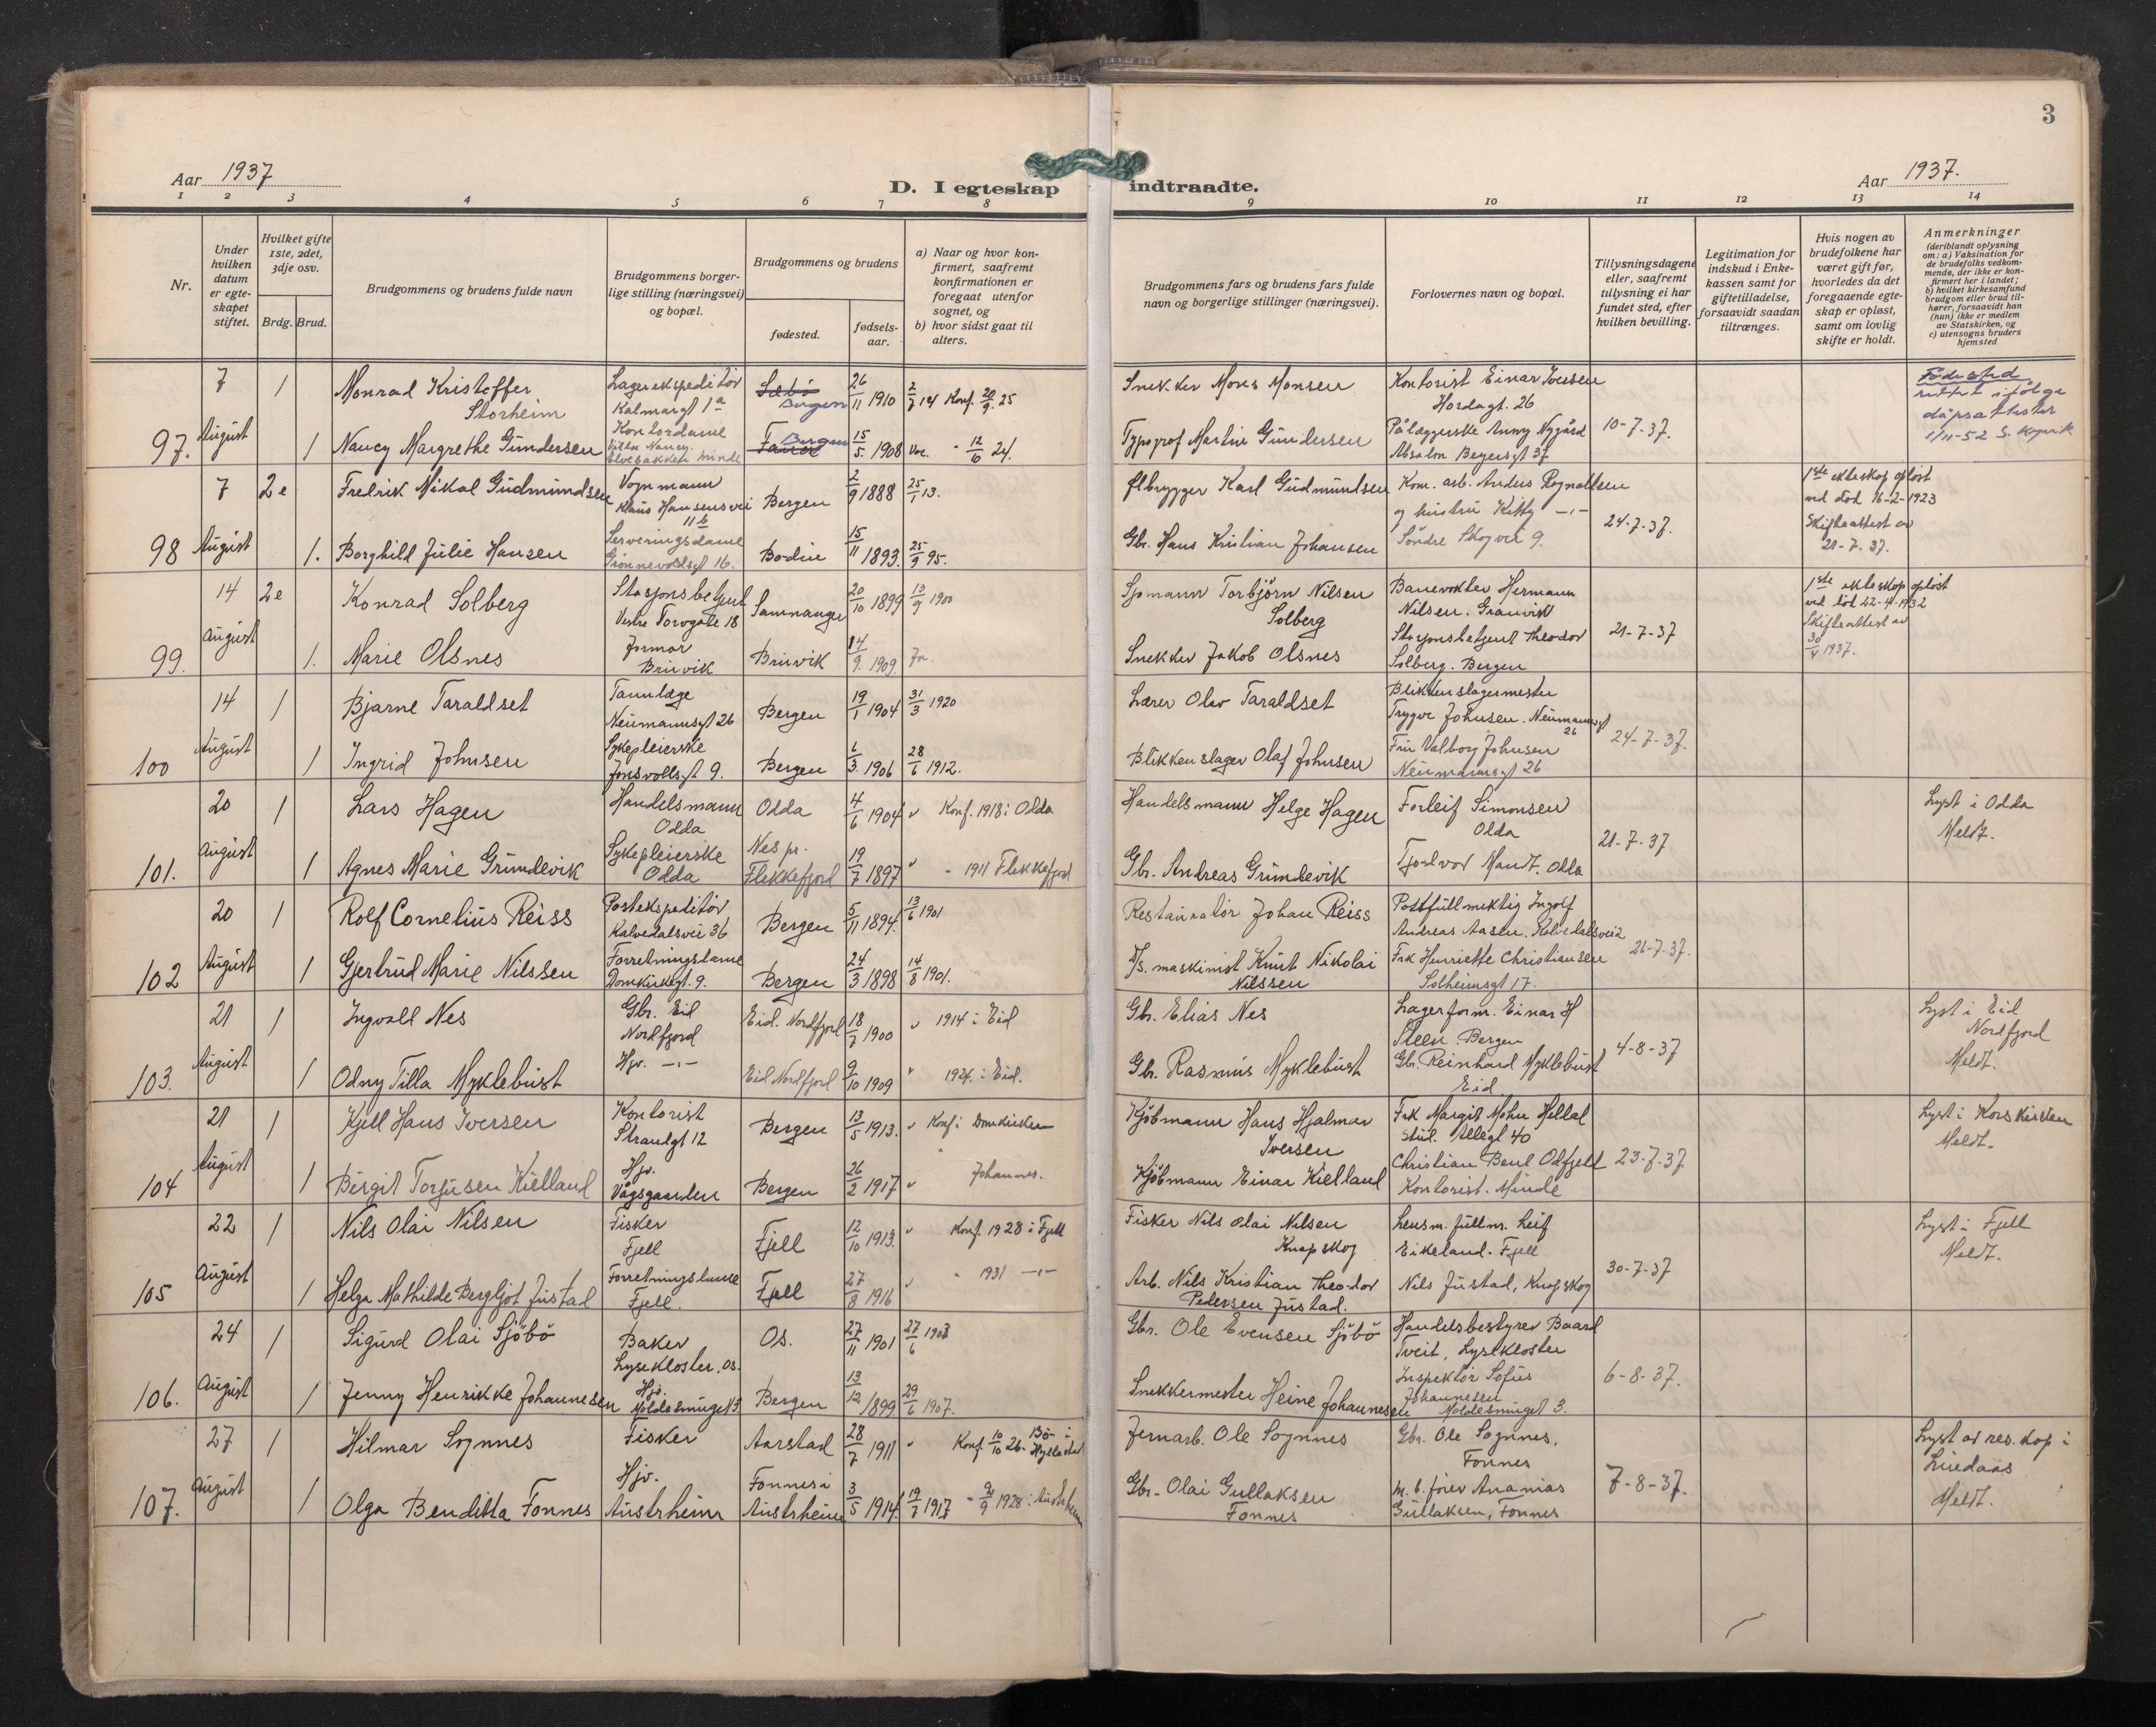 3
Aar 1937
D. I egteskap indtraadte.
Aar 1937.
1 2 3 4 5 6 7 8 9 10 11 12 13 14
Nr.
Under hvilken datum er egte- skapet stiftet.
Hvilket gifte 1ste, 2det, 3dje osv.
Brdg. Brud.
Brudgommens og brudens fulde navn
Brudgommens borger- lige stilling (næringsvei) og bopæl.
Brudgommens og brudens
fødested.
fødsels- aar.
a) Naar og hvor kon- firmert, saafremt konfirmationen er foregaat utenfor sognet, og
b) hvor sidst gaat til alters.
Brudgommens fars og brudens fars fulde navn og borgerlige stillinger (næringsvei).
Forlovernes navn og bopæl.
Tillysningsdagene eller, saafremt tillysning ei har fundet sted, efter hvilken bevilling.
Legitimation for indskud i Enke- kassen samt for giftetilladelse, forsaavidt saadan tiltrænges.
Hvis nogen av brudefolkene har været gift før, hvorledes da det foregaaende egte- skap er opløst, samt om lovlig skifte er holdt.
Anmerkninger (deriblandt oplysning om: a) Vaksination for de brudefolks vedkom- mende, der ikke er kon- firmert her i landet; b) hvilket kirkesamfund brudgom eller brud til- hører, forsaavidt han (hun) ikke er medlem av Statskirken, og c) utensogns bruders hjemsted
97. 7 August
1 Monrad Kristoffer Storheim
Lagerekspeditør Kalmargt 1a
Bergen 26/11 1910 2/7 14 Konf. 20/9. 25
Snekker Mons Monsen
Kontorist Einar Iversen Hordagt. 26
1 Nancy Margrethe Gundersen
Kontordame Villa Nancy. Elvebakken Minde
Bergen 15/5. 1908 Vac. " 12/6 24.
Typograf Martin Gundersen
Pålæggerske Anny Nygård Absalon Beyersgt 37
10-7-37.
Fødested rettet ifølge dåpsattester 1/11-52
98 7 August
2e Fredrik Nikal Gudmundsen
Vognmann Klaus Hansensvei 11b
Bergen 2/9 1888 25/1 13.
Ølbrygger Karl Gudmundsen
Kom. arb. Anders Rognaldsen og hustru Kitty -"-
1. Borghild Julie Hansen
Serveringsdame Grønnevoldsgt 16.
Bodin 15/11 1893. 25/9 95.
Gbr. Hans Kristian Johansen
Søndre Skogvei 9.
24-7-37.
1ste ekteskap opløst ved død 16-2-1923 Skifteattest av 21-7-37.
99. 14 August
2e Konrad Solberg
Stasjonsbetjent Vestre Torvgate 18
Samnanger 20/10 1899 13/9 1900
Sjømann Torbjørn Nilsen Solberg
Banevokter Hermann Nilsen. Granvik
1. Marie Olsnes
Jormor Bruvik
Bruvik 14/9. 1909 Ja.
Snekker Jakob Olsnes
Stasjonsbetjent Theodor Solberg. Bergen
21-7-37
1ste ekteskap opløst ved død 22-4-1932 Skifteattest av 30/4 1937.
100 14 August
1 Bjarne Taraldset
Tannlæge Neumannsgt 26
Bergen 19/1 1904 31/3 1920
Lærer Olav Taraldset
Blikkenslagermester Trygve Johnsen. Neumannsgt 26
1 Ingrid Johnsen
Sykepleierske Jonsvollsgt 9.
Bergen 6/3. 1906 28/6 1912.
Blikkenslager Olaf Johnsen
Fru Valborg Johnsen Neumannsgt 26
24-7-37.
101. 20 August
1 Lars Hagen
Handelsmann Odda
Odda 4/6 1904 v Konf. 1918 i Odda
Handelsmann Helge Hagen
Forleif Simonsen Odda
1 Agnes Marie Grundevik
Sykepleierske Odda
Nes pr. Flekkefjord 19/7 1897 " " 1911 Flekkefjord
Gbr. Andreas Grundevik
Tjodvor Mandt. Odda
21-7-37
Lyst i Odda Meldt.
102 20 August
1 Rolf Cornelius Reiss
Postekspeditør Kalvedalsvei 36
Bergen 5/11 1894. 13/6 1901
Restauratør Johan Reiss
Postfullmektig Ingolf Andreas Aasen. Kalvedalsvei 2
1 Gjertrud Marie Nilssen
Forretningsdame Domkirkegt. 9.
Bergen 24/3 1898 14/8 1901.
D/s. maskinist Knut Nikolai Nilssen
Frk Henriette Christiansen Solheimsgt 17.
21-7-37.
103. 21 August
1 Ingvald Nes
Gbr. Eid Nordfjord
Eid. Nordfjord 18/7 1900 v 1914 i Eid
Gbr. Elias Nes
Lagerform. Einar H Steen. Bergen
1 Odny Tilla Myklebust
Hjv. -"-
Eid Nordfjord 9/10 1909 " 1924. i Eid.
Gbr. Rasmus Myklebust
Gbr. Reinhard Myklebust Eid
4-8-37
Lyst i Eid Nordfjord Meldt.
104 21 August
1 Kjell Hans Iversen
Kontorist Strandgt 12
Bergen 13/5 1913. v Konf i Domkirken
Kjøbmann Hans Hjalmar Iversen
Frk Margit Mohn Helland stud. Allegt 40
1 Bergit Torjusen Kielland
Hjv. Vågsgaarden
Bergen 26/2 1917 v " Johannes.
Kjøbmann Einar Kielland
Christian Bent Odfjell Kontorist. Minde
23-7-37
Lyst i Korskirken Meldt-
105 22 August
1 Nils Olai Nilsen
Fisker Fjell
Fjell 12/10 1913. v Konf. 1928 i Fjell
Fisker Nils Olai Nilsen Knapskog
Lensm. fullm. Leif Eikeland. Fjell
1 Helga Mathilde Bergljot Justad
Forretningsdame Fjell.
Fjell 27/8 1916 v " 1931 -"-
Arb. Nils Kristian Theodor Pedersen Justad.
Nils Justad, Knapskog
30-7-37
Lyst i Fjell Meldt.
106. 24 August
1 Sigurd Olai Sjøbø
Baker Lysekloster. Os.
Os. 27/11 1901 27/6 1903
Gbr. Ole Evensen Sjøbø
Handelsbestyrer Baard Tveit, Lysekloster
1 Jenny Henrikke Johannesen
Hjv. Moldesmuget 3.
Bergen 13/12. 1899. 29/6 1907.
Snekkermester Heine Johannesen
Inspektør Sofus Johannesen Moldesmuget 3.
6-8-37.
107. 27 August
1 Hilmar Sognnes
Fisker
Aarstad 28/7 1911 v Konf. 10/10 26. Bø i Hyllestad
Jernarb. Ole Sognnes
Gbr. Ole Sognnes, Fonnes
1 Olga Benditta Fonnes
Hjv. Austrheim
Fonnes i Austrheim 3/5 1914. 19/7 1917 " 9/9 1928 i Austrheim
Gbr. Olai Gullaksen Fonnes
m. b. fører Ananias Gullaksen, Fonnes
7-8-37.
Lyst av res. kap i Lindaas Meldt.